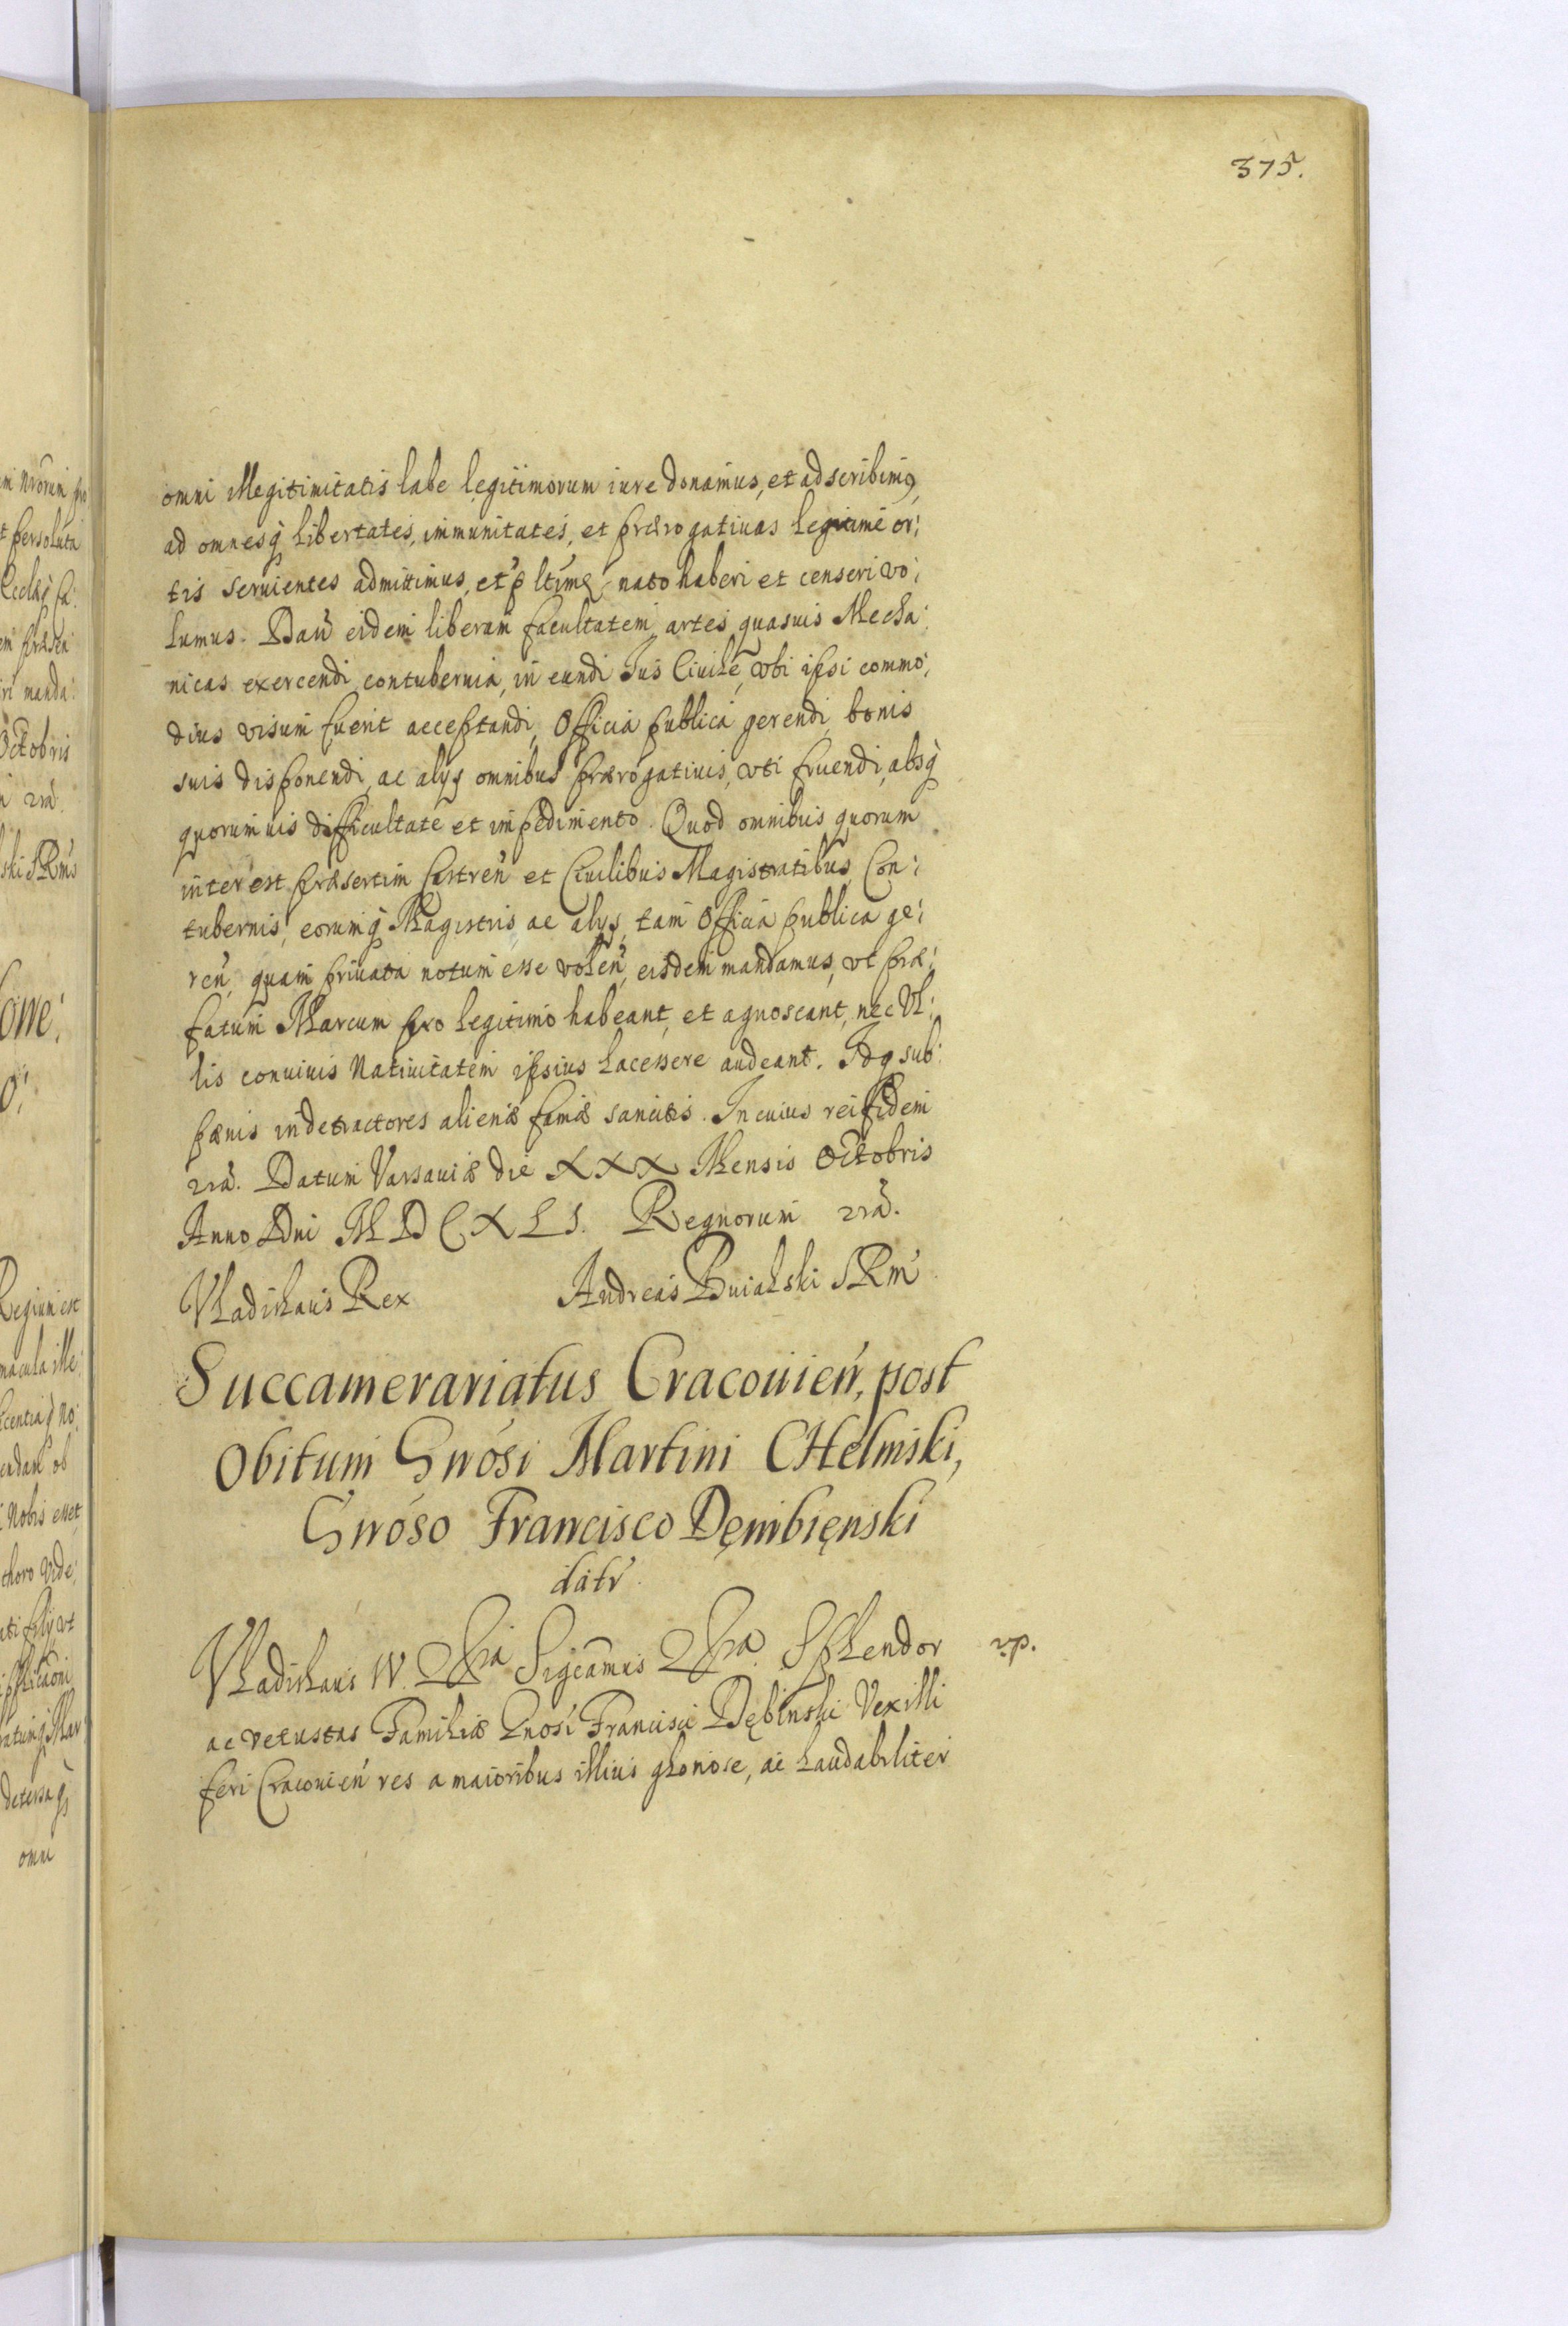 375.
omni illegitimitatis labe legitimorum iure donamus, et adscribimꝰ,
ad omnesq́ libertates, immunitates, et prærogatiuas legitime or:
tis seruientes admittimus, et ꝑ ltime nato haberi et censeri vo:
lumus. Dań eidem liberam facultatem artes quasuis Mecha:
nicas exercendi contubernia, in eundi Jus Ciuile, vbi ipsi commo:
dius visum fuerit acceptandi, Officia publica gerendi, bonis
suis disponendi, ac alys omnibus prærogatiuis, vti fruendi, absq́
quorumuis difficultate et impedimento. Quod omnibus quorum
interest præsertim Castreń et Ciuilibus Magistratibus, Con:
tubernis, eorumq́ Magistris, ac alys, tam Officia publica ge:
reń, quam priuata notum esse voleń, eisdem mandamus, vt præ:
fatum Marcum pro legitimo habeant, et agnoscant, nec Vl:
lis conuiuis Natiuitatem ipsius lacessere audeant. Idq sub:
pænis in detractores alienæ famæ sancitis. In cuius rei fidem
rrã. Datum Varsauiæ die XXX Mensis Octobris
Anno Dni M D C X L I. Regnorum rrã.
Vladislaus Rex Andreas Buialski SRM
Succamerariatus Cracouień, post
Obitum Gnósi Martini CHelmski,
Gnóso Francisco Dęmbięnski
datŕ
Vladislaus IV. Dra Sigcamus Dra. Splendor vp.
ac vetustas Familiæ Gnosi Francisci Dębinski Vexilli
feri Cracouień res a maioribus illius gloriose, ac laudabiliter